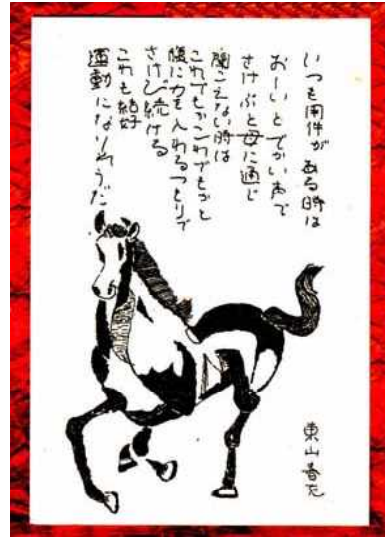 いつも用件が ある時は
おーいと でかい声で
さけぶと母に通じ
聞こえない時は
これでもかこれでもかと
腹に力を入れるつもりで
さけび続ける
これも結好
運動になりそうだ
東山